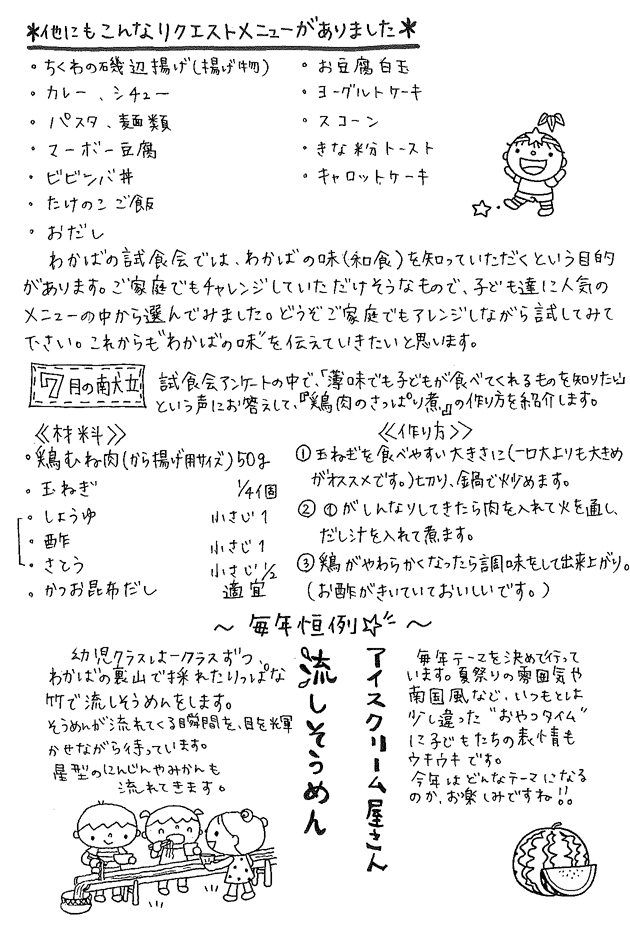 *他にもこんなリクエストメニューがありました*
・ちくわの磯辺揚げ(揚げ物)
・カレー、シチュー
・パスタ、麺類
・マーボー豆腐
・ビビンバ丼
・たけのこご飯
・おだし
・お豆腐白玉
・ヨーグルトケーキ
・スコーン
・きな粉トースト
・キャロットケーキ
わかばの試食会では、わかばの味(和食)を知っていただくという目的
があります。ご家庭でもチャレンジしていただけそうなもので、子ども達に人気の
メニューの中から選んでみました。どうぞご家庭でもアレンジしながら試してみて
下さい。これからも"わかばの味"を伝えていきたいと思います。
7月の献立
試食会アンケートの中で、「薄味でも子どもが食べてくれるものを知りたい」
という声にお答えして、『鶏肉のさっぱり煮』の作り方を紹介します。
《材料》
・鶏むね肉(から揚げ用サイズ)50g
・玉ねぎ 1/4個
・しょうゆ 小さじ1
・酢 小さじ1
・さとう 小さじ1/2
・かつお昆布だし 適宜
《作り方》
①玉ねぎを食べやすい大きさに(一口大よりも大きめ
がオススメです。)切り、鍋で炒めます。
②①がしんなりしてきたら肉を入れて火を通し、
だし汁を入れて煮ます。
③鶏がやわらかくなったら調味をして出来上がり。
(お酢がきいていておいしいです。)
〜毎年恒例☆〜
流しそうめん
幼児クラスは一クラスずつ、
わかばの裏山で採れたりっぱな
竹で流しそうめんをします。
そうめんが流れてくる瞬間を、目を輝
かせながら待っています。
星型のにんじんやみかんも
流れてきます。
アイスクリーム屋さん
毎年テーマを決めて行って
います。夏祭りの雰囲気や
南国風など、いつもとは
少し違った"おやつタイム"
に子どもたちの表情も
ウキウキです。
今年はどんなテーマになる
のか、お楽しみですね!!